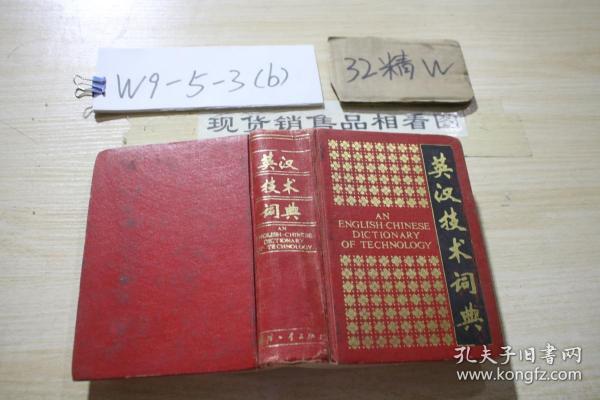 W9-5-3(b)
32精W
现货销售品相看图
英汉
技术
词典
AN
ENGLISH-CHINESE
DICTIONARY
OF TECHNOLOGY
AN
ENGLISH-CHINESE
DICTIONARY
OF TECHNOLOGY
英汉技术词典
孔夫子旧书网
www.kongfz.com